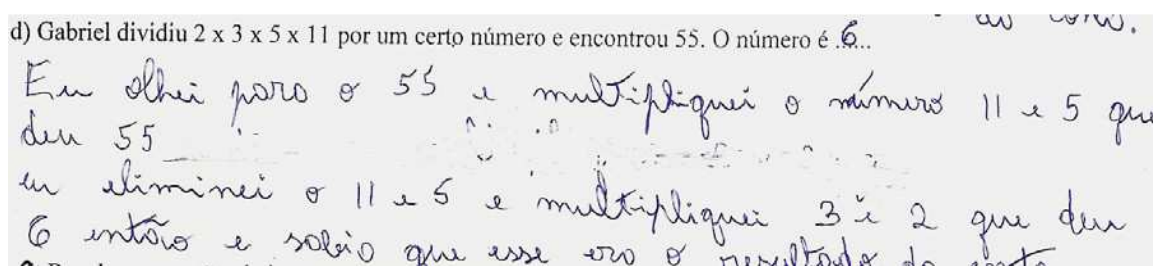 ao cono.
d) Gabriel dividiu 2 x 3 x 5 x 11 por um certo número e encontrou 55. O número é .6...
Eu olhei para o 55 e multipliquei o número 11 e 5 que
deu 55
eu eliminei o 11 e 5 e multipliquei 3 e 2 que deu
6 então e sabio que esse era o resultado da conta